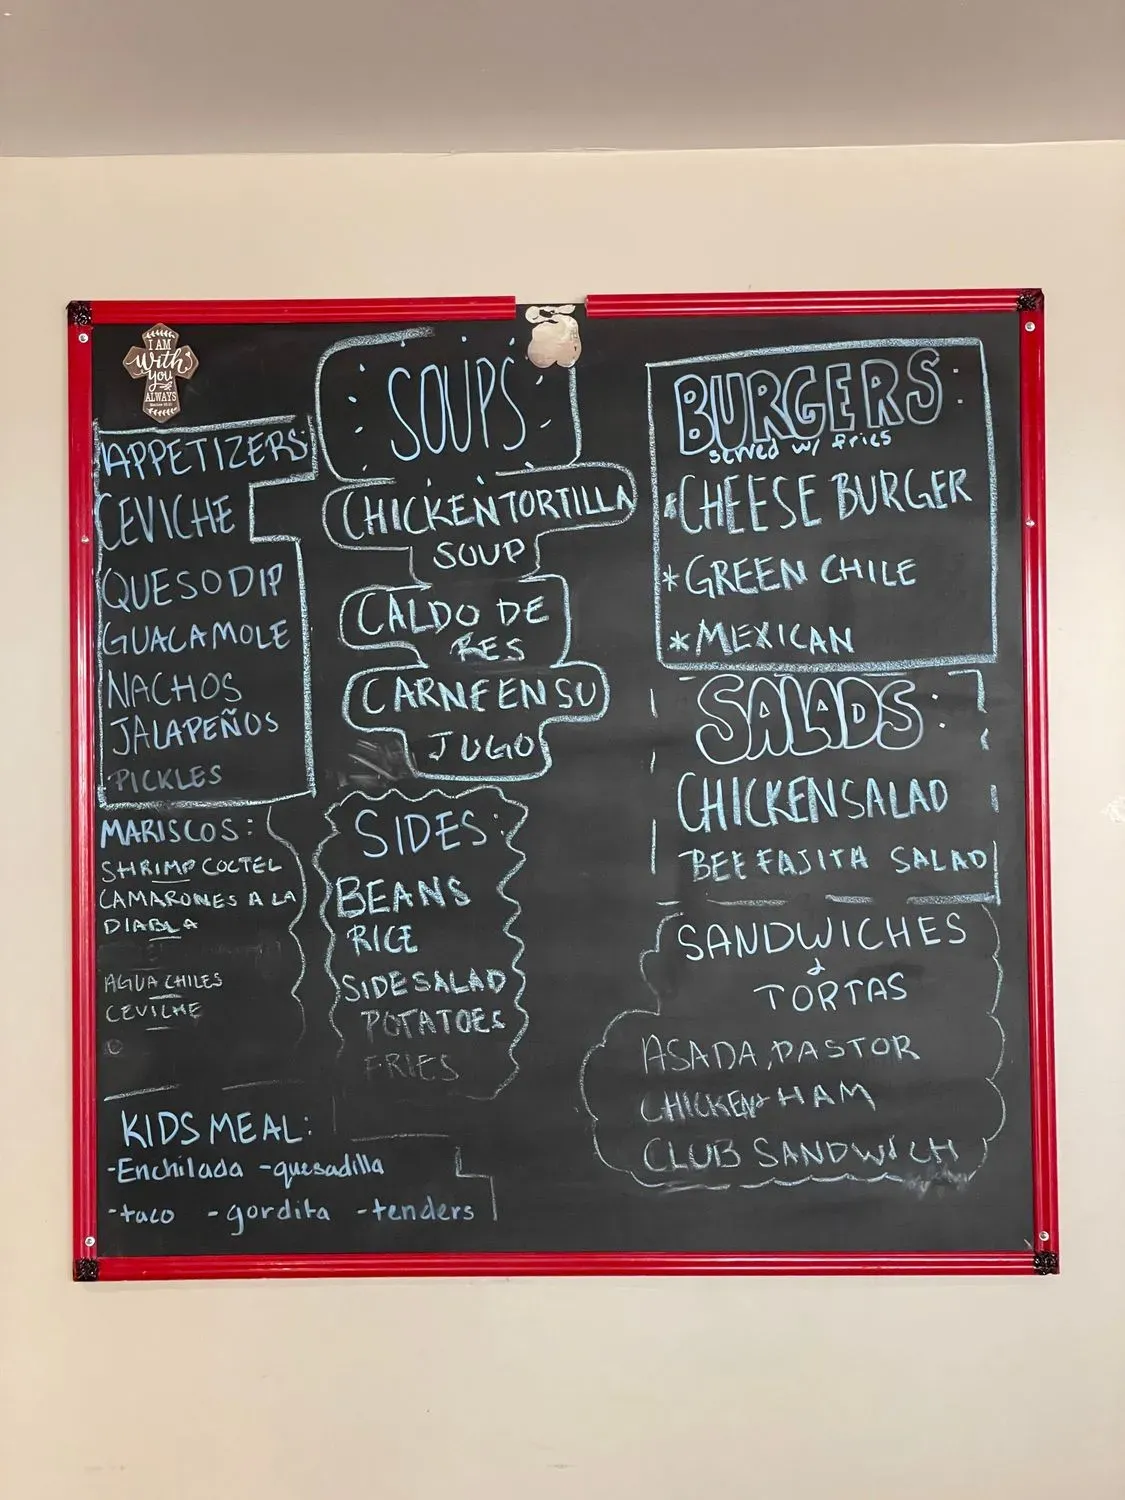 I AM
With
you
ALWAYS
APPETIZERS:
CEVICHE
QUESO DIP
GUACAMOLE
NACHOS
JALAPEÑOS
PICKLES
MARISCOS:
SHRIMP COCTEL
CAMARONES A LA
DIABLA
AGUA CHILES
CEVICHE
KIDS MEAL:
-Enchilada -quesadilla
-taco -gordita -tenders
SOUPS
CHICKEN TORTILLA
SOUP
CALDO DE
RES
CARNE EN SU
JUGO
SIDES:
BEANS
RICE
SIDE SALAD
POTATOES
FRIES
BURGERS:
served w/ fries
*CHEESE BURGER
*GREEN CHILE
*MEXICAN
SALADS:
CHICKEN SALAD
BEE FAJITA SALAD
SANDWICHES
&
TORTAS
ASADA, PASTOR
CHICKEN + HAM
CLUB SANDWICH